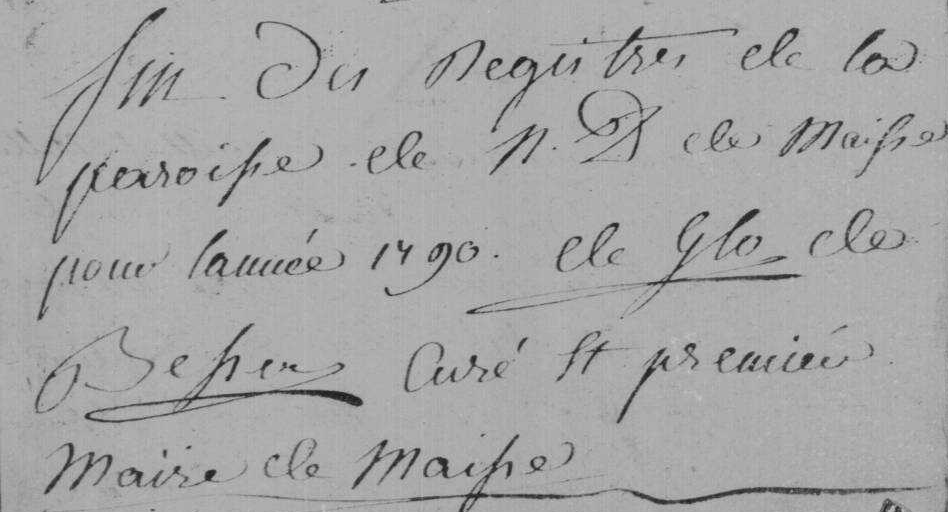 fin Des Registres de la
paroisse de N. D de Maisse
pour lannée 1790. de Glo de
Besses Curé Et premier
Maire de Maisse